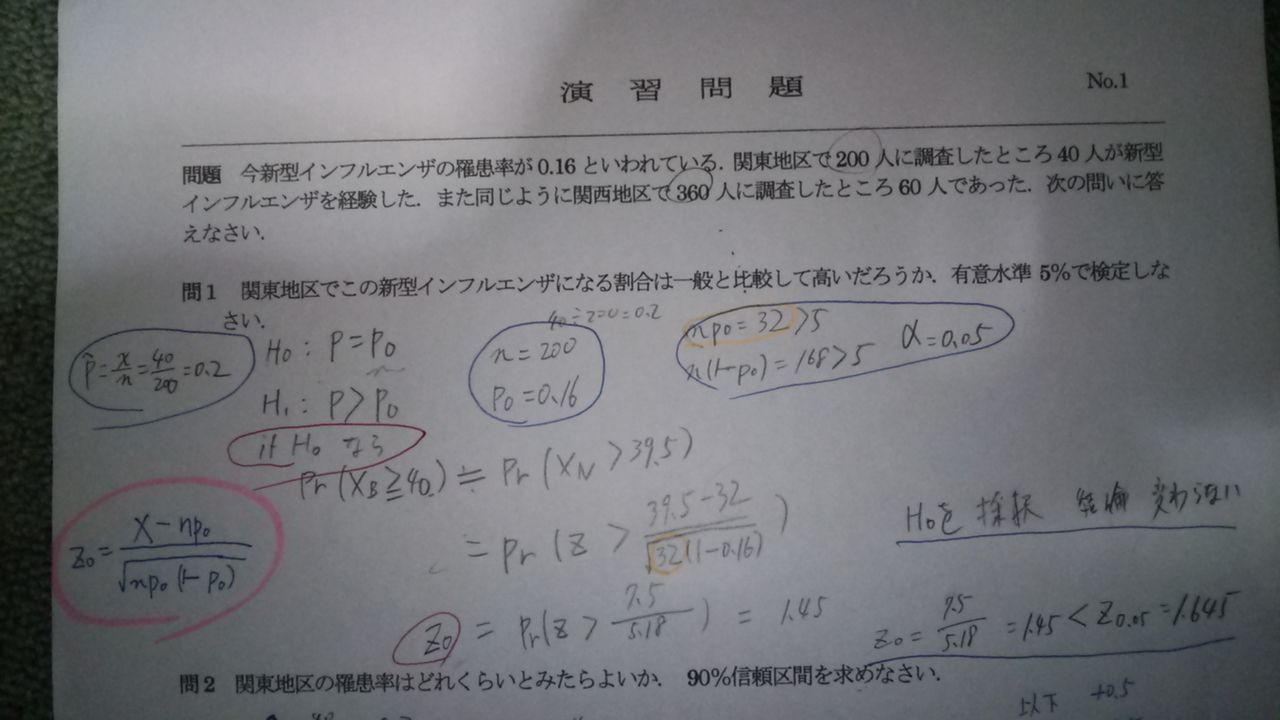 演習問題
No.1
問題 今新型インフルエンザの罹患率が0.16といわれている. 関東地区で200人に調査したところ40人が新型
インフルエンザを経験した. また同じように関西地区で360人に調査したところ60人であった. 次の問いに答
えなさい.
問1 関東地区でこの新型インフルエンザになる割合は一般と比較して高いだろうか. 有意水準5%で検定しな
さい.
40÷200=0.2
p̂=x/n=40/200=0.2
H₀: P=P₀
n=200
np₀=32>5
n(1-p₀)=168>5
α=0.05
H₁: P>P₀
P₀=0.16
if H₀ なら
Pr(X_B≧40) ≒ Pr(X_N>39.5)
= Pr(Z > (39.5-32)/√(32(1-0.16)))
H₀を 採択 結論 変わらない
Z₀=(X-np₀)/√(np₀(1-p₀))
Z₀ = Pr(Z > 7.5/5.18) = 1.45
Z₀ = 7.5/5.18 = 1.45 < Z₀.₀₅ = 1.645
問2 関東地区の罹患率はどれくらいとみたらよいか. 90%信頼区間を求めなさい.
以下 +0.5